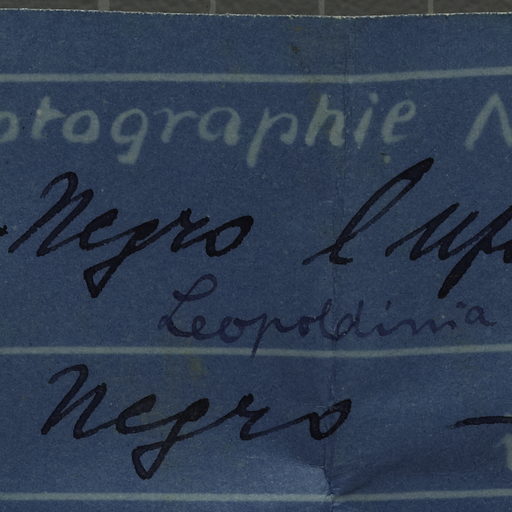 otographie N
Negro
Leopoldinia
Negro —